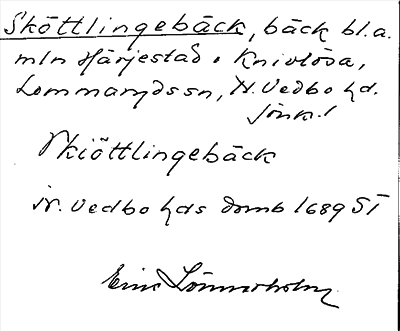 Sköttlingebäck, bäck bl.a.
mln Härjestad o Knivlösa,
Lommarydssn, N. Vedbo hd.
Jönk.l
Skiöttlingebäck
N. Vedbo hds domb 1689 ST
Eric Lönnerholm